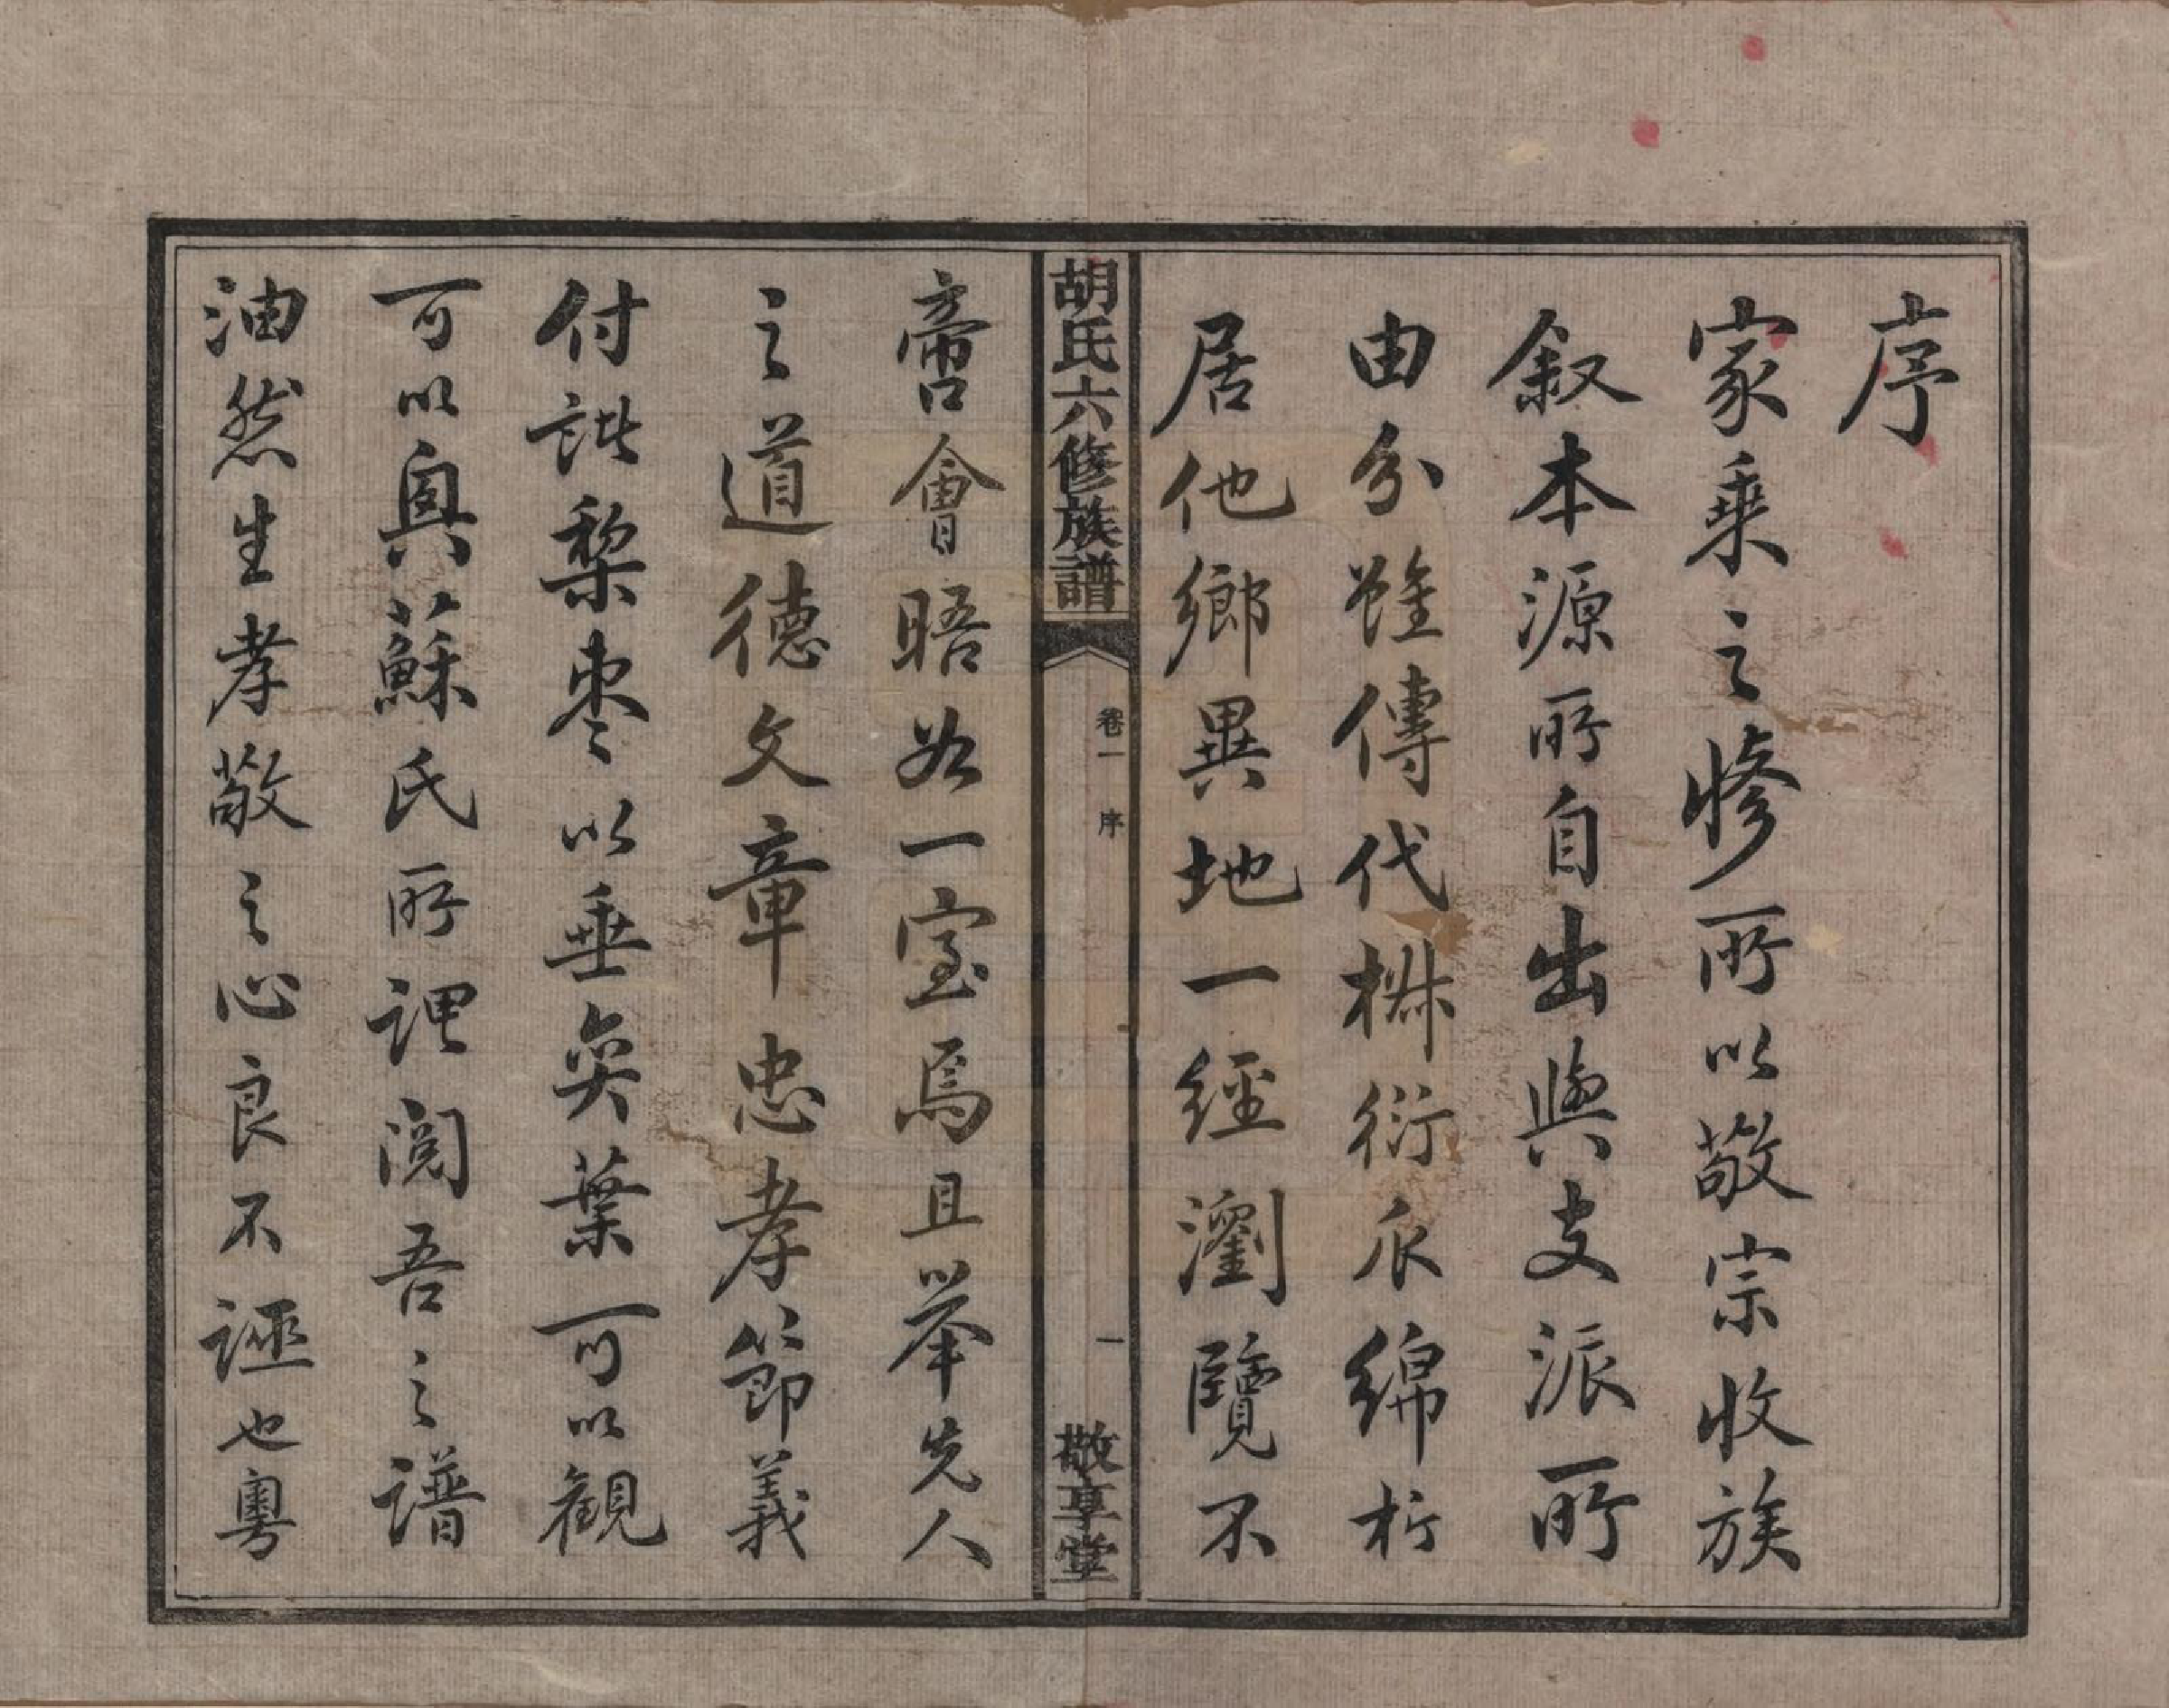 序
家乘之修所以敬宗收族
叙本源所自出與支派所
由分雖傳代椒衍瓜綿析
居他鄉異地一經瀏覽不
啻會晤於一室焉且举先人
之道德文章忠孝節義
付諸梨枣以垂奕葉可以観
可以興蘇氏所謂閲吾之譜
油然生孝敬之心良不誣也粤
胡氏六修族譜
卷一 序
一
敬享堂